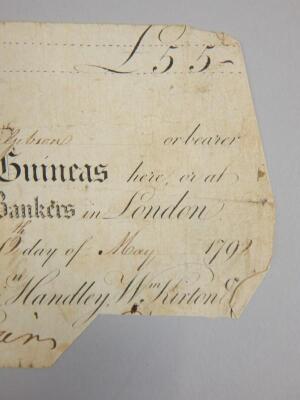 £5 5-
Gibson or bearer
Guineas here, or at
Bankers in London.
th day of May 1792
Handley, Wm Kirton &